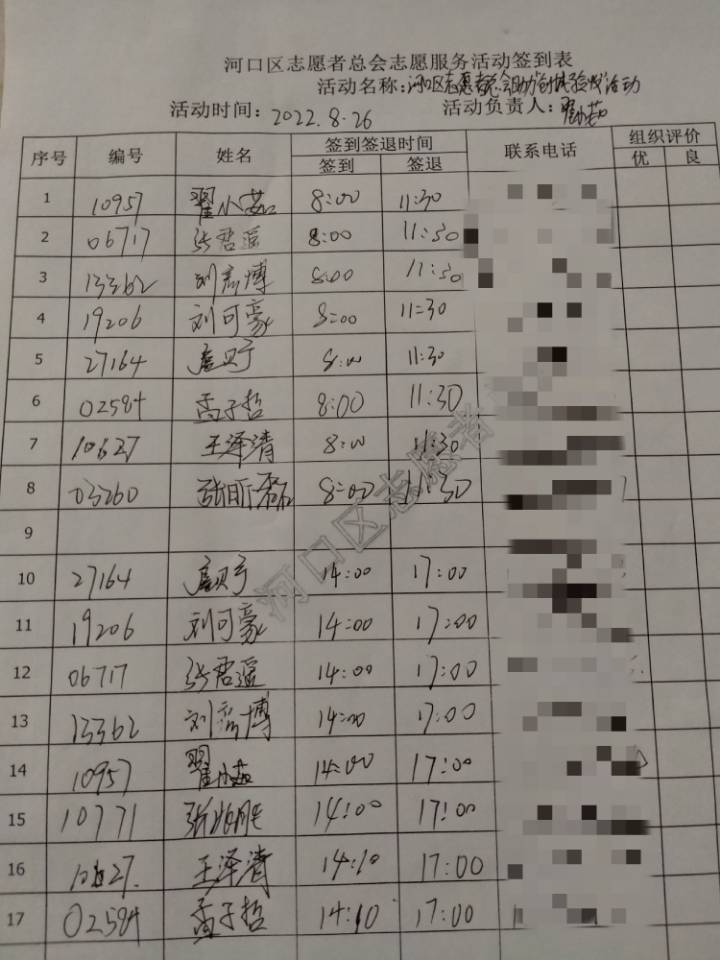 河口区志愿者总会志愿服务活动签到表
活动名称:河口区志愿者总会助力创城 活动
活动时间:2022.8.26 活动负责人:翟小茹
序号 编号 姓名 签到签退时间 联系电话 组织评价
签到 签退 优 良
1 10957 翟小茹 8:00 11:30
2 06717 张君遥 8:00 11:30
3 13362 刘彦博 8:00 11:30
4 19206 刘可豪 8:00 11:30
5 27164 8:00 11:30
6 02584 孟子哲 8:00 11:30
7 10627 王泽清 8:00 11:30
8 03260 张昕磊 8:00 11:30
9
10 27164 14:00 17:00
11 19206 刘可豪 14:00 17:00
12 06717 张君遥 14:00 17:00
13 13362 刘彦博 14:00 17:00
14 10957 翟小茹 14:00 17:00
15 10771 14:00 17:00
16 10627. 王泽清 14:10 17:00
17 02584 孟子哲 14:10 17:00
河口区志愿者